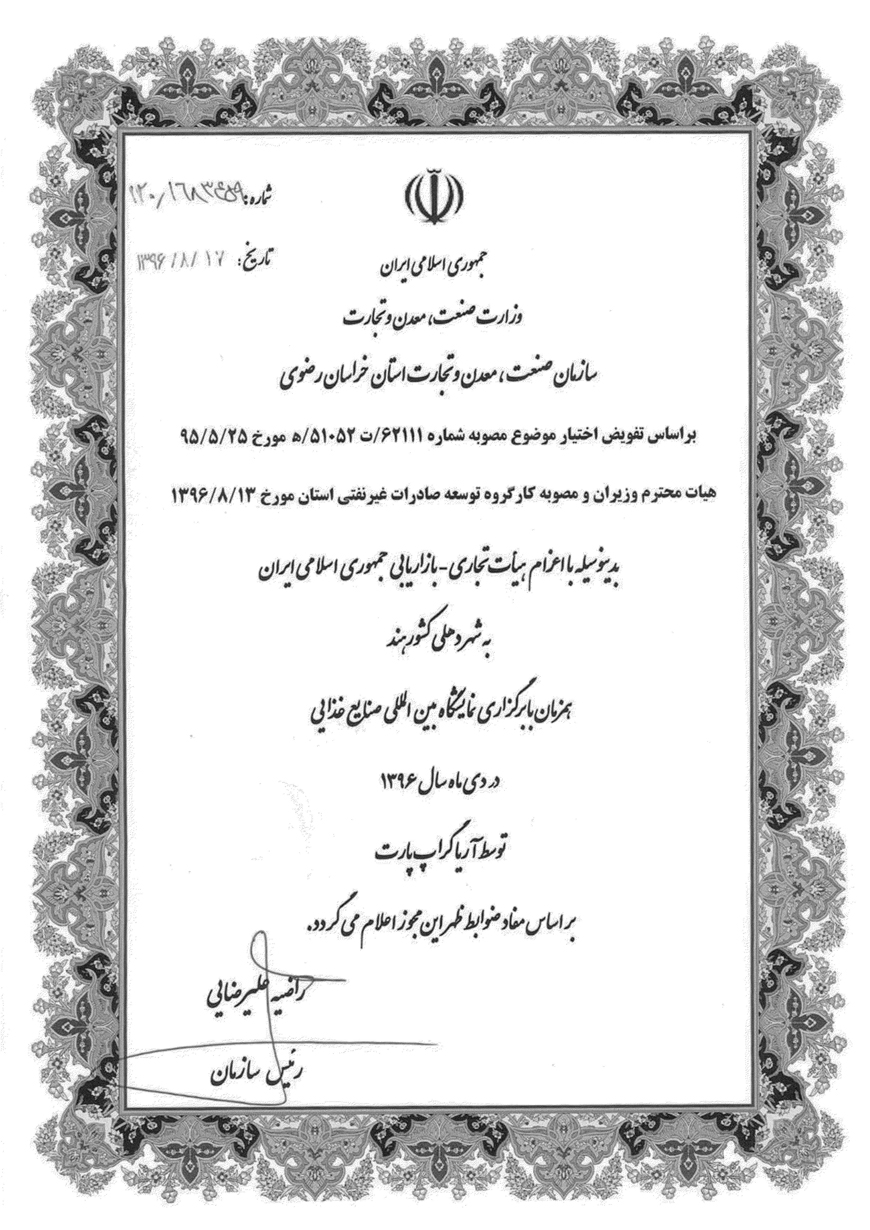 شماره: ۱۲۰/۱۶۸۳۴۵۹
تاریخ: ۱۳۹۶/۸/۱۷
جمهوری اسلامی ایران
وزارت صنعت، معدن و تجارت
سازمان صنعت، معدن و تجارت استان خراسان رضوی
براساس تفویض اختیار موضوع مصوبه شماره ۶۲۱۱۱/ت ۵۱۰۵۲/ه مورخ ۹۵/۵/۲۵
هیات محترم وزیران و مصوبه کارگروه توسعه صادرات غیرنفتی استان مورخ ۱۳۹۶/۸/۱۳
بدینوسیله با اعزام هیأت تجاری-بازاریابی جمهوری اسلامی ایران
به شهر دهلی کشور هند
همزمان با برگزاری نمایشگاه بین المللی صنایع غذایی
در دی ماه سال ۱۳۹۶
توسط آریا گراپ پارت
بر اساس مفاد ضوابط ظهر این مجوز اعلام می گردد.
راضیه علیرضایی
رئیس سازمان